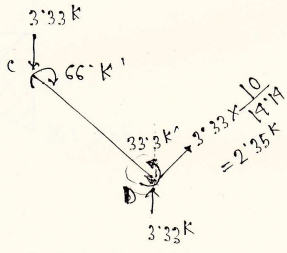 3.33K
C 66.K'
33.3K'
3.33 X 10/14.14
= 2.35K
D
3.33K